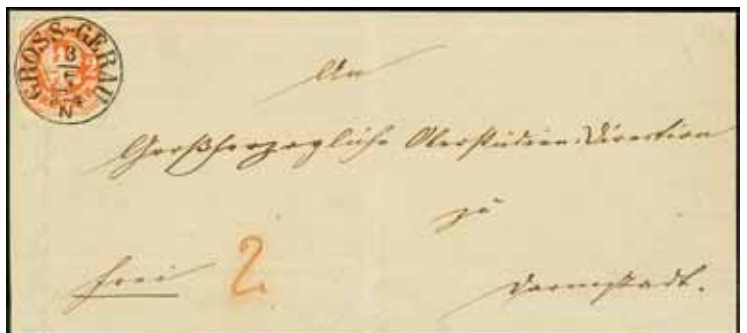 GROSS-GERAU
8
N
An
Großherzogliche Oberstudien-Direction
zu
frei 2
Darmstadt.